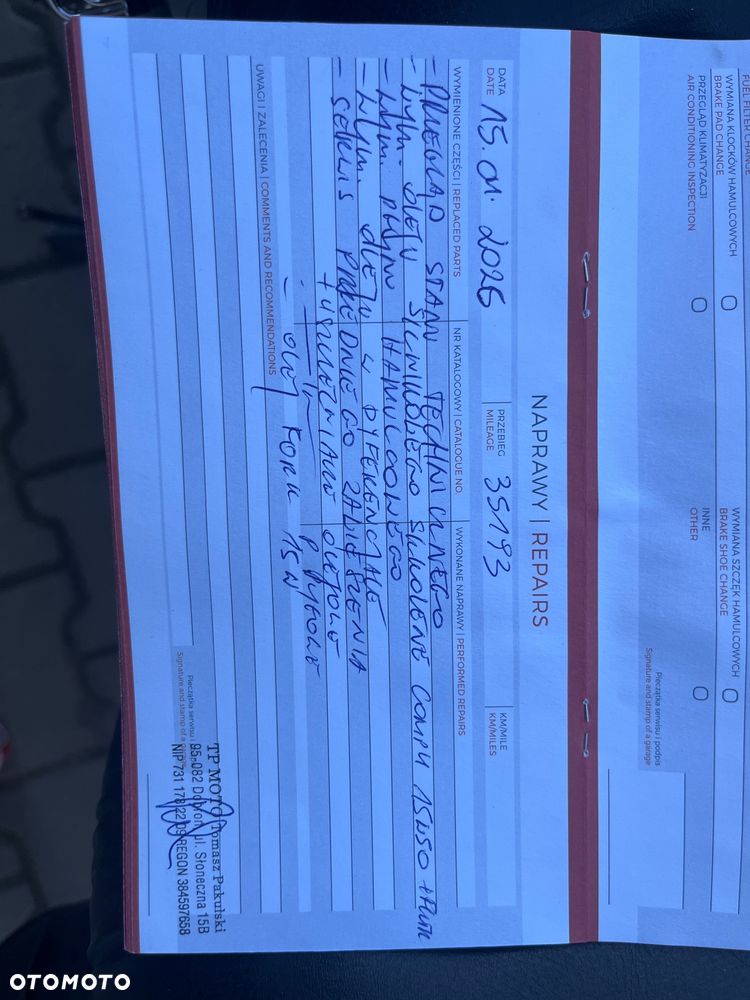 FUEL FILTER CHANGE
WYMIANA KLOCKÓW HAMULCOWYCH
BRAKE PAD CHANGE
WYMIANA SZCZĘK HAMULCOWYCH
BRAKE SHOE CHANGE
PRZEGLĄD KLIMATYZACJI
AIR CONDITIONING INSPECTION
INNE
OTHER
Pieczątka serwisu i podpis
Signature and stamp of a garage
NAPRAWY | REPAIRS
DATA
DATE
15.01.2026
PRZEBIEG
MILEAGE
35193
KM/MILE
KM/MILES
WYMIENIONE CZĘŚCI | REPLACED PARTS
NR KATALOGOWY | CATALOGUE NO.
WYKONANE NAPRAWY | PERFORMED REPAIRS
- PRZEGLĄD STANU TECHNICZNEGO
- WYM. OLEJU SILNIKOWEGO SILKOLENE COMP4 15W50 + FILTR
- WYM. PŁYNU HAMULCOWEGO
- WYM. OLEJU W DYFERENCJALE
- SERWIS PRZEDNIEGO ZAWIESZENIA
+ USZCZELNIACZE OLEJOWE
PYŁOWE
- OLEJ FORK 15W
UWAGI I ZALECENIA | COMMENTS AND RECOMMENDATIONS
Pieczątka serwisu i
Signature and stamp of a
TP MOTO Tomasz Pakulski
95-082 Dobroń, ul. Słoneczna 15B
NIP 731 178 22 09 REGON 384597658
OTOMOTO